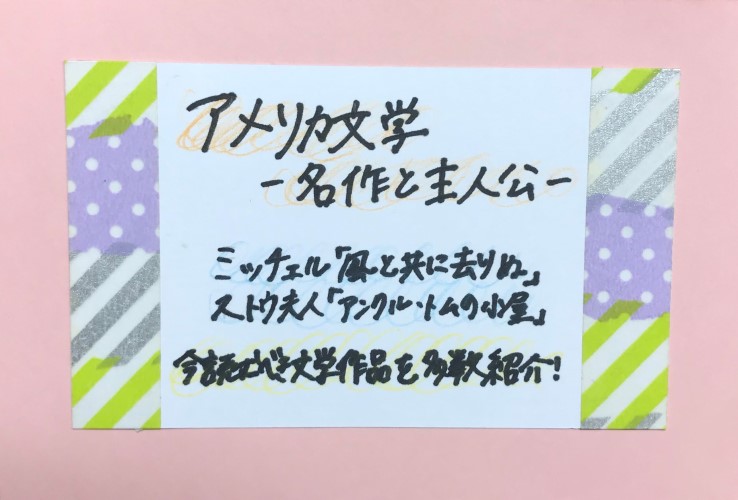 アメリカ文学
－名作と主人公－
ミッチェル「風と共に去りぬ」
ストウ夫人「アンクル・トムの小屋」
今読むべき文学作品を多数紹介!